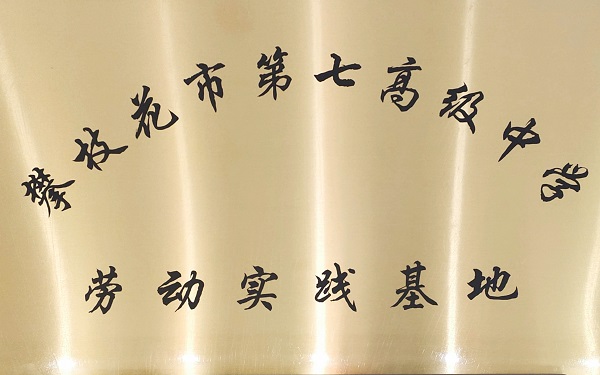 攀枝花市第七高级中学
劳动实践基地